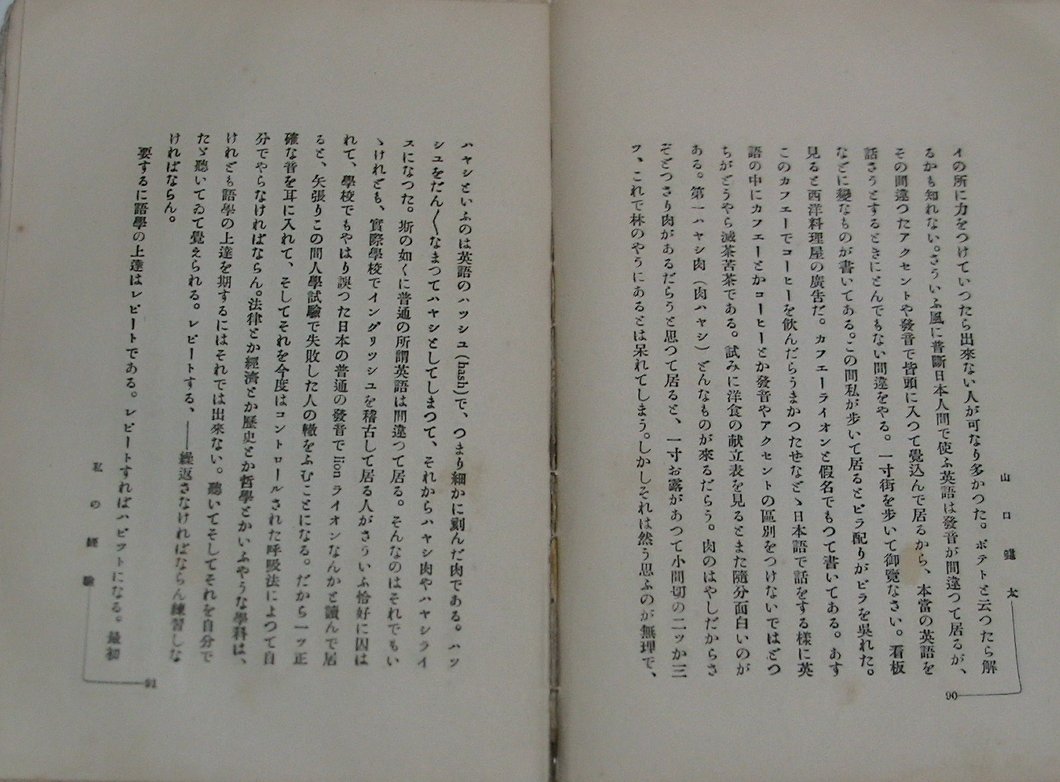 山口鍵太
90
イの所に力をつけていつたら出來ない人が可なり多かつた。ポテトと云つたら解
るかも知れない。さういふ風に普斷日本人間で使ふ英語は發音が間違つて居るが、
その間違つたアクセントや發音で皆頭に入つて疊込んで居るから、本當の英語を
話さうとするときにとんでもない間違をやる。一寸街を歩いて御覽なさい。看板
などに變なものが書いてある。この間私が歩いて居るとビラ配りがビラを呉れた。
見ると西洋料理屋の廣告だ。カフエーライオンと假名でもつて書いてある。あす
このカフエーでコーヒーを飲んだらうまかつたせなどゝ日本語で話をする樣に英
語の中にカフエーとかコーヒーとか發音やアクセントの區別をつけないではどつ
ちがどうやら滅茶苦茶である。試みに洋食の献立表を見るとまた隨分面白いのが
ある。第一ハヤシ肉(肉ハヤシ)どんなものが來るだらう。肉のはやしだからさ
ぞどつさり肉があるだらうと思つて居ると、一寸お露があつて小間切の二ッか三
ツ、これで林のやうにあるとは呆れてしまう。しかしそれは然う思ふのが無理で、
ハヤシといふのは英語のハッシユ(hash)で、つまり細かに刻んだ肉である。ハッ
シユをだん〱なまつてハヤシとしてしまつて、それからハヤシ肉やハヤシライ
スになつた。斯の如くに普通の所謂英語は間違つて居る。そんなのはそれでもい
ゝけれども、實際學校でイングリッシユを稽古して居る人がさういふ恰好に因は
れて、學校でもやはり誤つた日本の普通の發音でlionライオンなんかと讀んで居
ると、矢張りこの間人學試驗で失敗した人の轍をふむことになる。だから一ッ正
確な音を耳に入れて、そしてそれを今度はコントロールされた呼吸法によつて自
分でやらなければならん。法律とか經濟とか歷史とか哲學とかいふやうな學科は、
けれども語學の上達を期するにはそれでは出來ない。聽いてそしてそれを自分で
たゞ聽いてゐて覺えられる。レピートする、――繰返さなければならん練習しな
ければならん。
要するに語學の上達はレピートである。レピートすればハビツトになる。最初
私の經驗
91